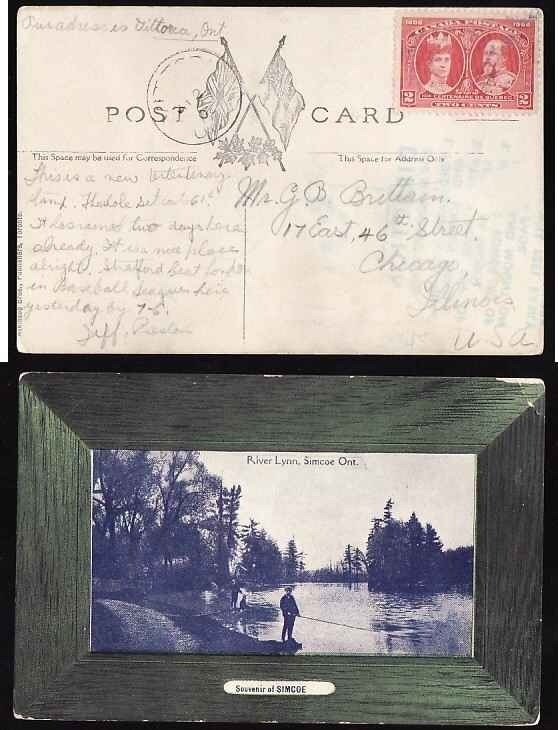 Our address is Vittoria, Ont
1608 CANADA POSTAGE 1908
IIIe CENTENAIRE DE QUÉBEC
2 TWO CENTS 2
POST CARD
This Space may be used for Correspondence
This Space for Address Only
This is a new Tercentenary
stamp. The whole set cost 61¢.
It has rained two days here
already. It is a nice place
alright. Stratford beat London
in Baseball league here
yesterday by 7-6.
Jeff. Preston
Mr. G. B. Brittain.
17 East, 46th Street.
Chicago,
Illinois
U S A
Publishers, Toronto.
River Lynn, Simcoe Ont.
Souvenir of SIMCOE